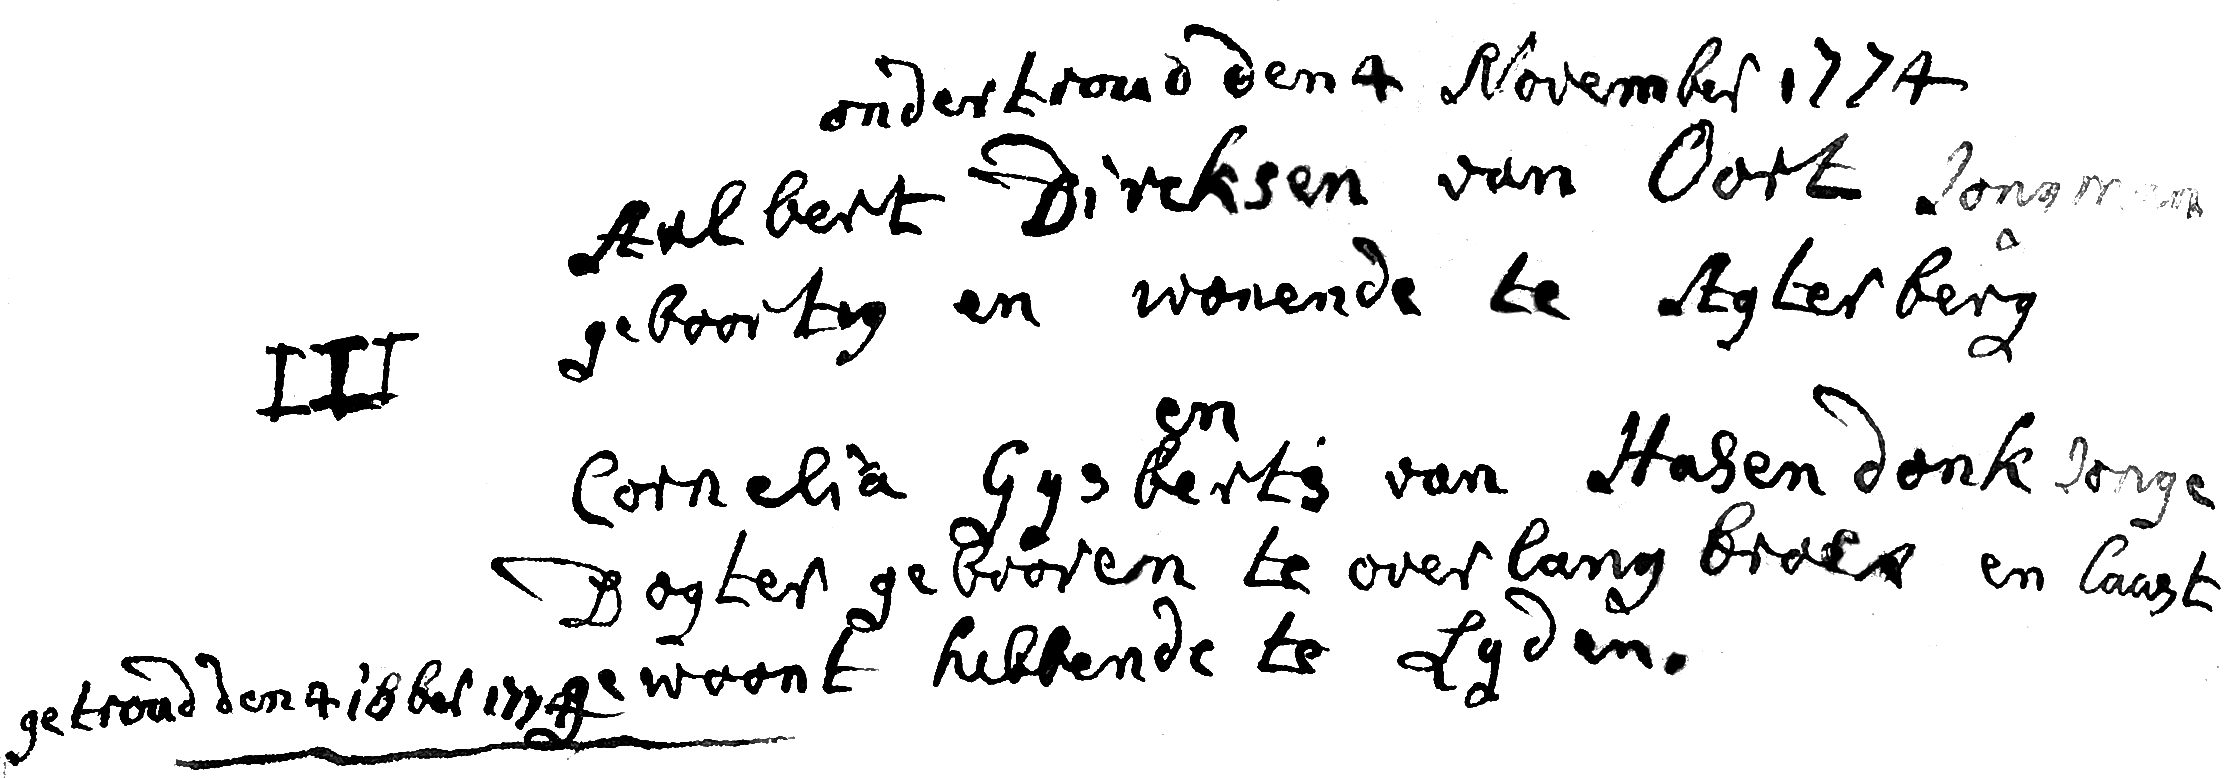 ondertroud den 4 November 1774
Aalbert Dircksen van Oort Jongman
geboortig en wonende te Agterberg
III
en
Cornelia Gysberts van Hasendonk Jonge
Dogter gebooren te overlangbroek en laast
gewoont hebbende te Lyden.
getroud den 4 18ber 1774